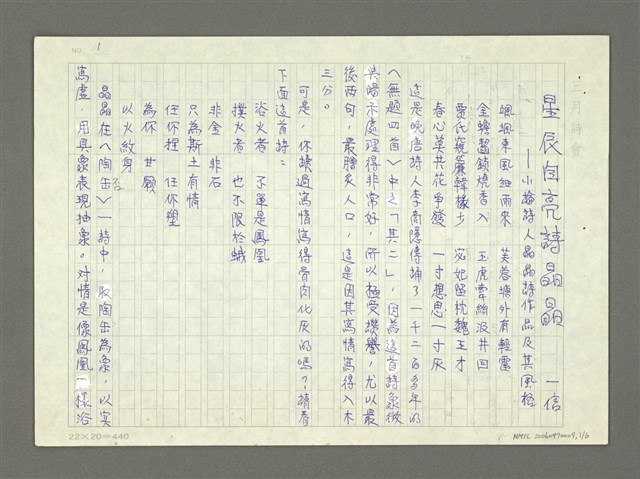 NO. 1
星辰自亮詩晶晶
——小論詩人晶晶詩作品及其風格
一信
颯颯東風細雨來 芙蓉塘外有輕雷
金蟾齧鎖燒香入 玉虎牽絲汲井回
賈氏窺簾韓椽少 宓妃留枕魏王才
春心莫共花爭發 一寸想思一寸灰
這是晚唐詩人李商隱傳誦了一千二百多年的
〈無題四首〉中之「其二」,因為這首詩象徵
與暗示處理得非常好,所以極受讚譽,尤以最
後兩句,最膾炙人口,這是因其寫情寫得入木
三分。
可是,你讀過寫情寫得骨肉化灰的嗎?請看
下面這首詩:
浴火者 不單是鳳凰
撲火者 也不限於蛾
非金 非石
只為斯土有情
任你捏 任你塑
為你 甘願
以火紋身
晶晶在〈陶缶〉一詩中,取陶缶為象,以實
寫虛,用具象表現抽象。對情是像鳳凰一樣浴
22×20=440
NMTL 20060970009,1/6